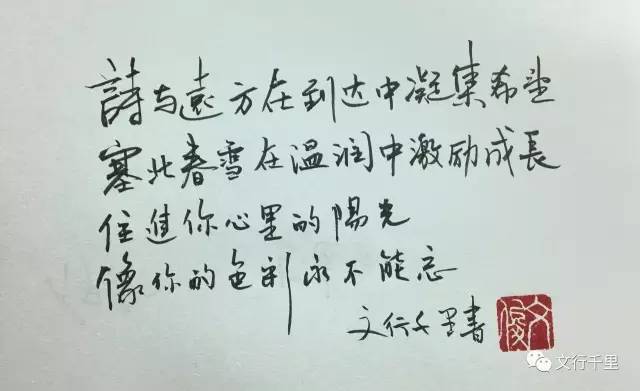 詩与遠方在到达中凝集希望
塞北春雪在温润中激励成長
住進你心里的陽光
像你的色彩永不能忘
文行千里書
文行千里